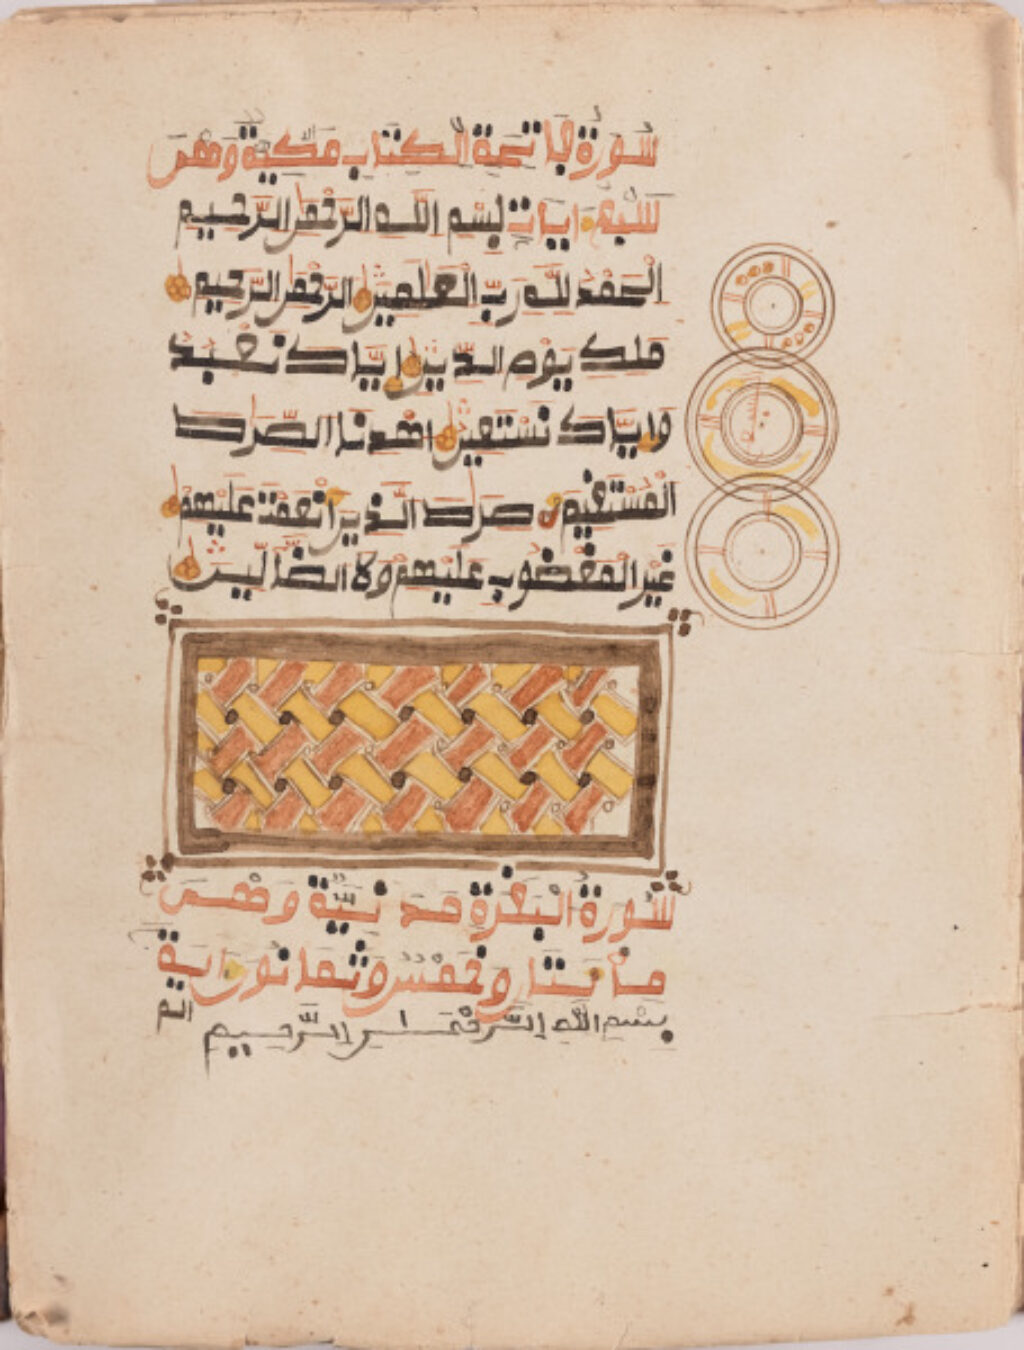 سورة فاتحة الكتاب مكية وهي
سبع ايات بسم الله الرحمن الرحيم
الحمد لله رب العلمين الرحمن الرحيم
ملك يوم الدين اياك نعبد
واياك نستعين اهدنا الصراط
المستقيم صراط الذين انعمت عليهم
غير المغضوب عليهم ولا الضالين
سورة البقرة مدنية وهي
مائتان وخمس وثمانون اية
بسم الله الرحمن الرحيم الم